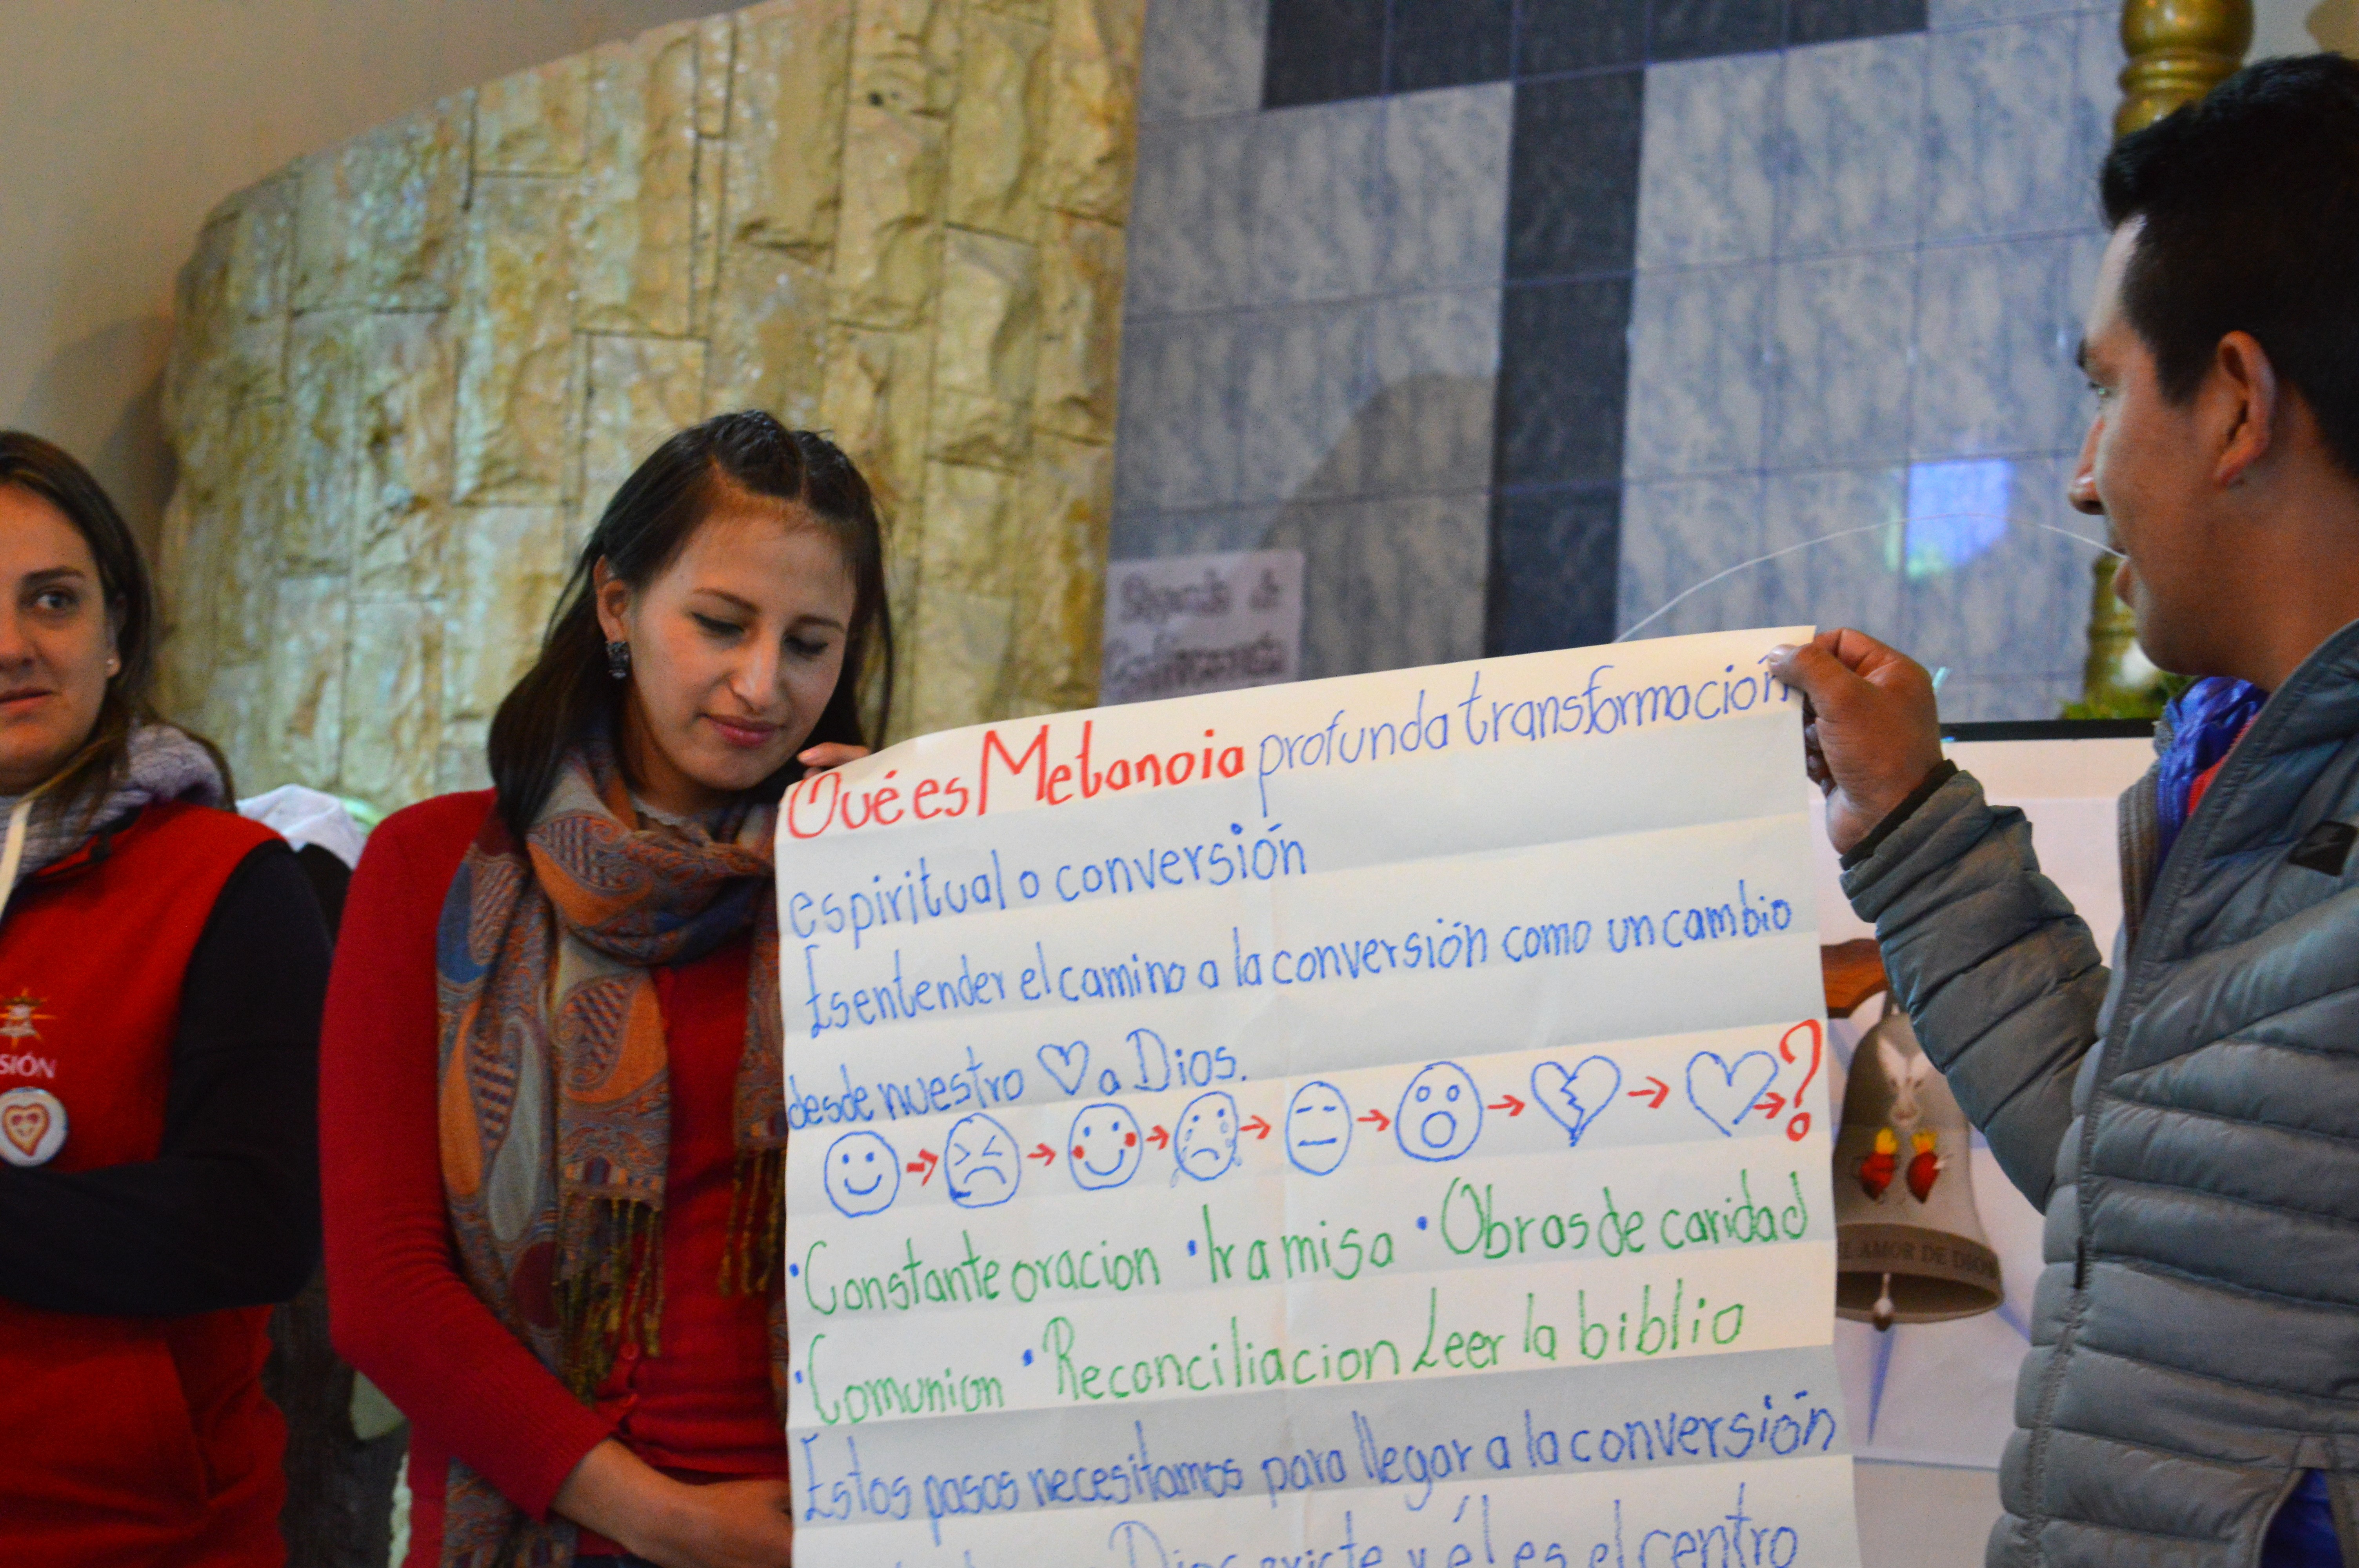 Qué es Metanoia profunda transformación
espiritual o conversión
Es entender el camino a la conversión como un cambio
desde nuestro a Dios.
?
• Constante oracion • Ir a misa • Obras de caridad
• Comunion • Reconciliacion Leer la biblia
Estos pasos necesitamos para llegar a la conversión
Dios existe y él es el centro
SIÓN
EL AMOR DE DIOS